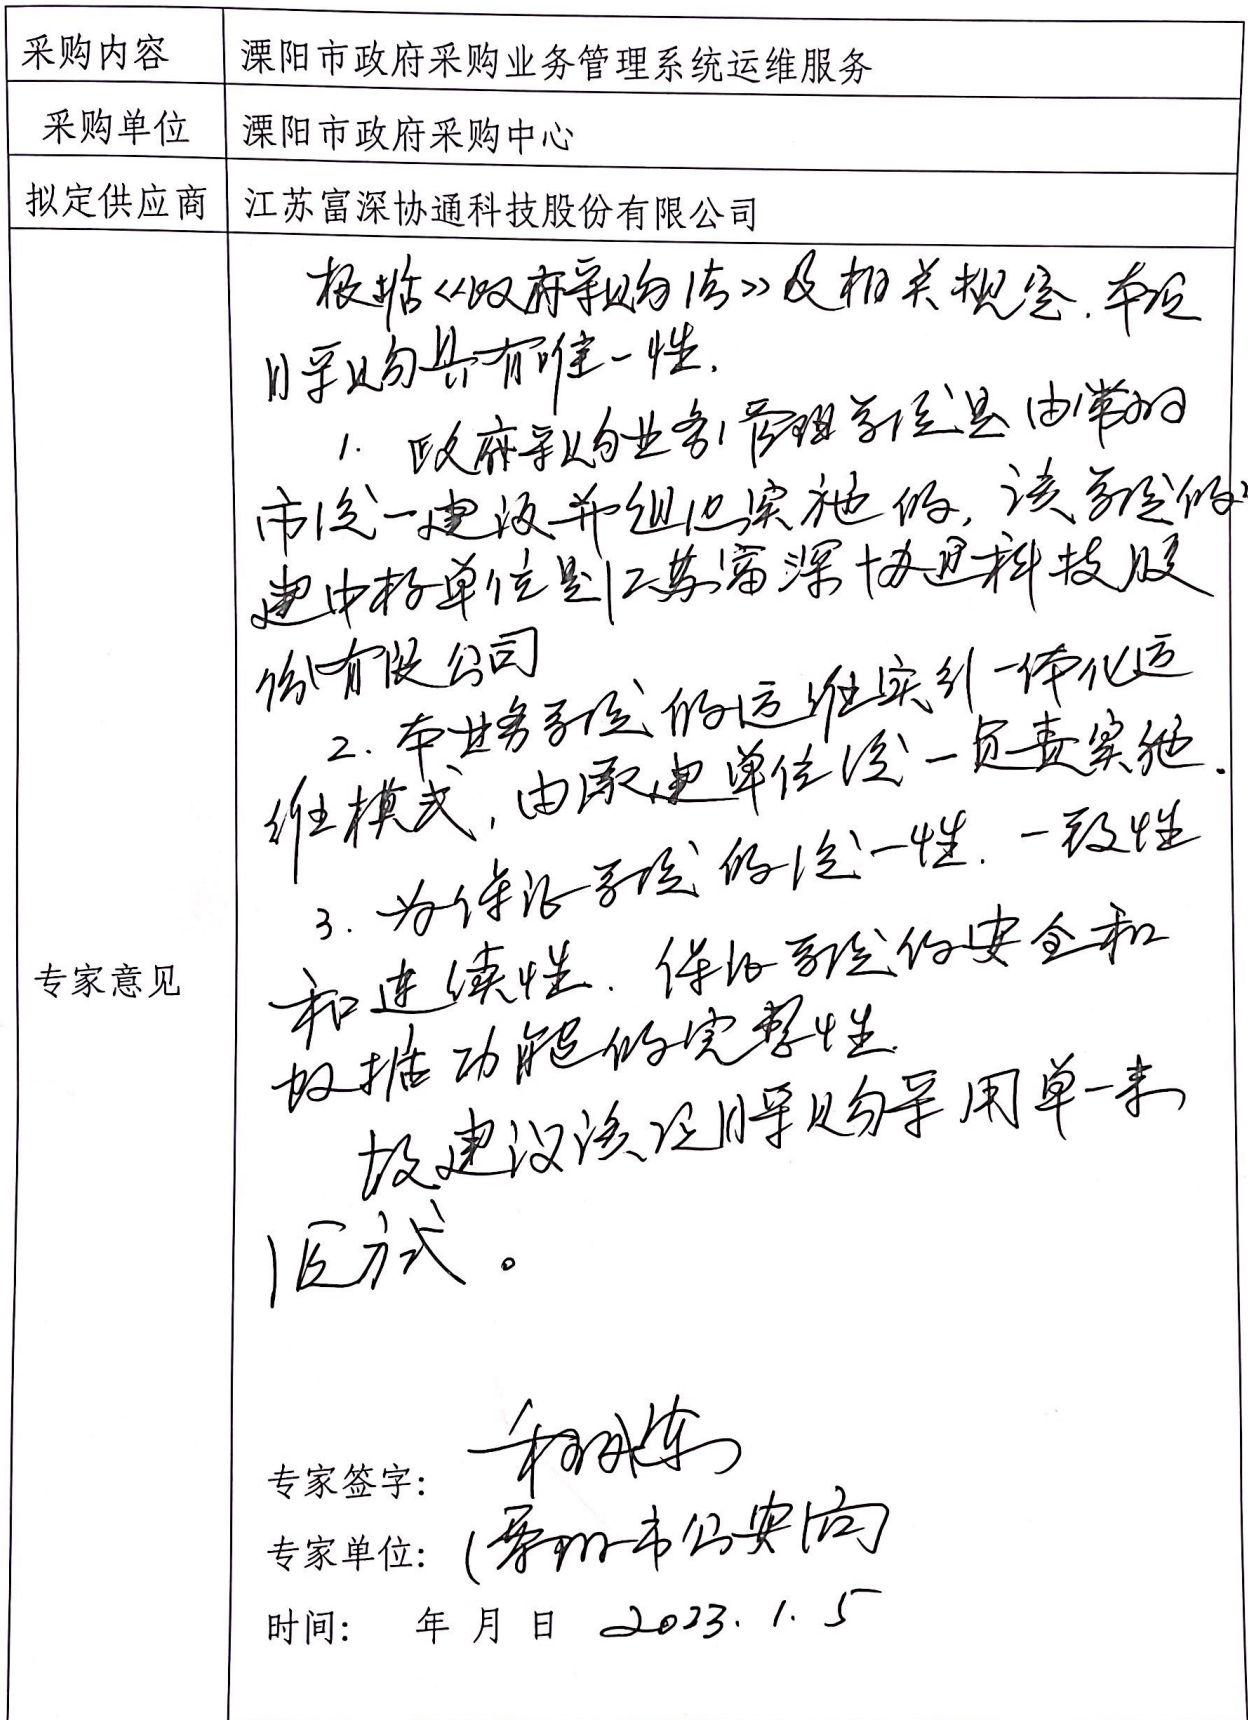 采购内容 溧阳市政府采购业务管理系统运维服务
采购单位 溧阳市政府采购中心
拟定供应商 江苏富深协通科技股份有限公司
专家意见
根据《政府采购法》及相关规定.本项
目采购具有唯一性.
1. 政府采购业务管理系统是由常州
市统一建设并组织实施的,该系统的
建中标单位是江苏富深协通科技股
份有限公司
2. 本业务系统的运维实行一体化运
维模式,由承建单位统一负责实施.
3. 为保证系统的统一性.一致性
和连续性.保证系统的安全和
数据功能的完整性.
故建议该项目采购采用单一来
源方式。
专家签字:
专家单位: 溧阳市公安局
时间: 年 月 日 2023.1.5